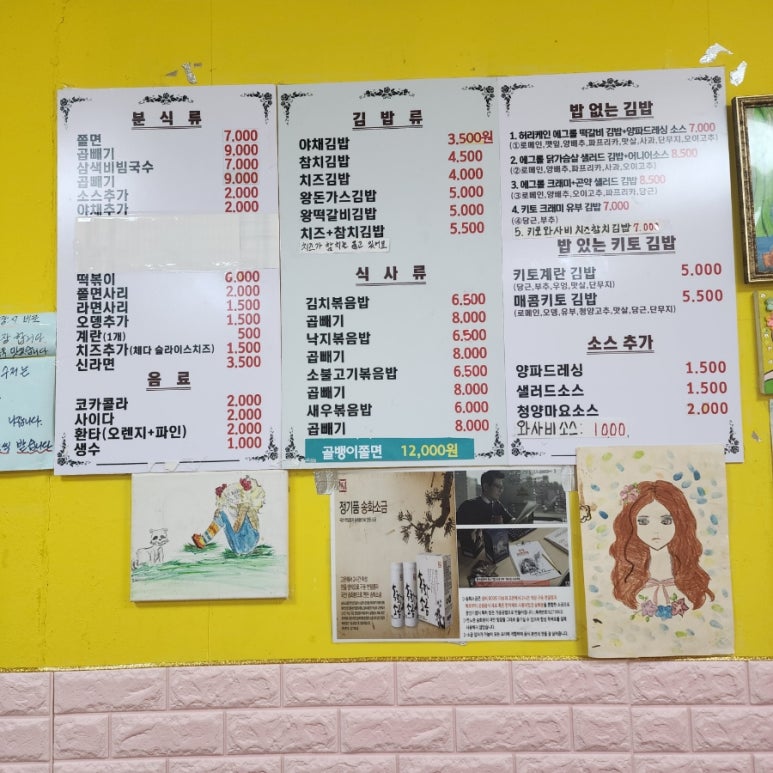 분 식 류
쫄면 7.000
곱빼기 9.000
삼색비빔국수 7.000
곱빼기 9.000
소스추가 2.000
야채추가 2.000
떡볶이 6.000
쫄면사리 2.000
라면사리 1.500
오뎅추가 1.500
계란(1개) 500
치즈추가(체다 슬라이스치즈) 1.500
신라면 3.500
음 료
코카콜라 2.000
사이다 2.000
환타(오렌지+파인) 2.000
생수 1.000
김 밥 류
야채김밥 3.500원
참치김밥 4.500
치즈김밥 4.000
왕돈가스김밥 5.000
왕떡갈비김밥 5.000
치즈+참치김밥 5.500
식 사 류
김치볶음밥 6.500
곱빼기 8.000
낙지볶음밥 6.500
곱빼기 8.000
소불고기볶음밥 6.500
곱빼기 8.000
새우볶음밥 6.000
곱빼기 8.000
골뱅이쫄면 12,000원
밥 없는 김밥
1. 허리케인 에그롤 떡갈비 김밥+양파드레싱 소스 7.000
(①로메인,깻잎,양배추,파프리카,맛살,사과,단무지,오이고추)
2. 에그롤 닭가슴살 샐러드 김밥+어니어소스 8.500
(②로메인,양배추,파프리카,사과,오이고추)
3. 에그롤 크래미+곤약 샐러드 김밥 8.500
(③로메인,양배추,오이고추,파프리카,당근)
4. 키토 크래미 유부 김밥 7.000
(④당근,부추)
5. 키토와사비 치즈참치김밥 7.000
밥 있는 키토 김밥
키토계란 김밥 5.000
(당근,부추,우엉,맛살,단무지)
매콤키토 김밥 5.500
(로메인,오뎅,유부,청양고추,맛살,당근,단무지)
소스 추가
양파드레싱 1.500
샐러드소스 1.500
청양마요소스 2.000
와사비소스: 1000.
정기품 송화소금